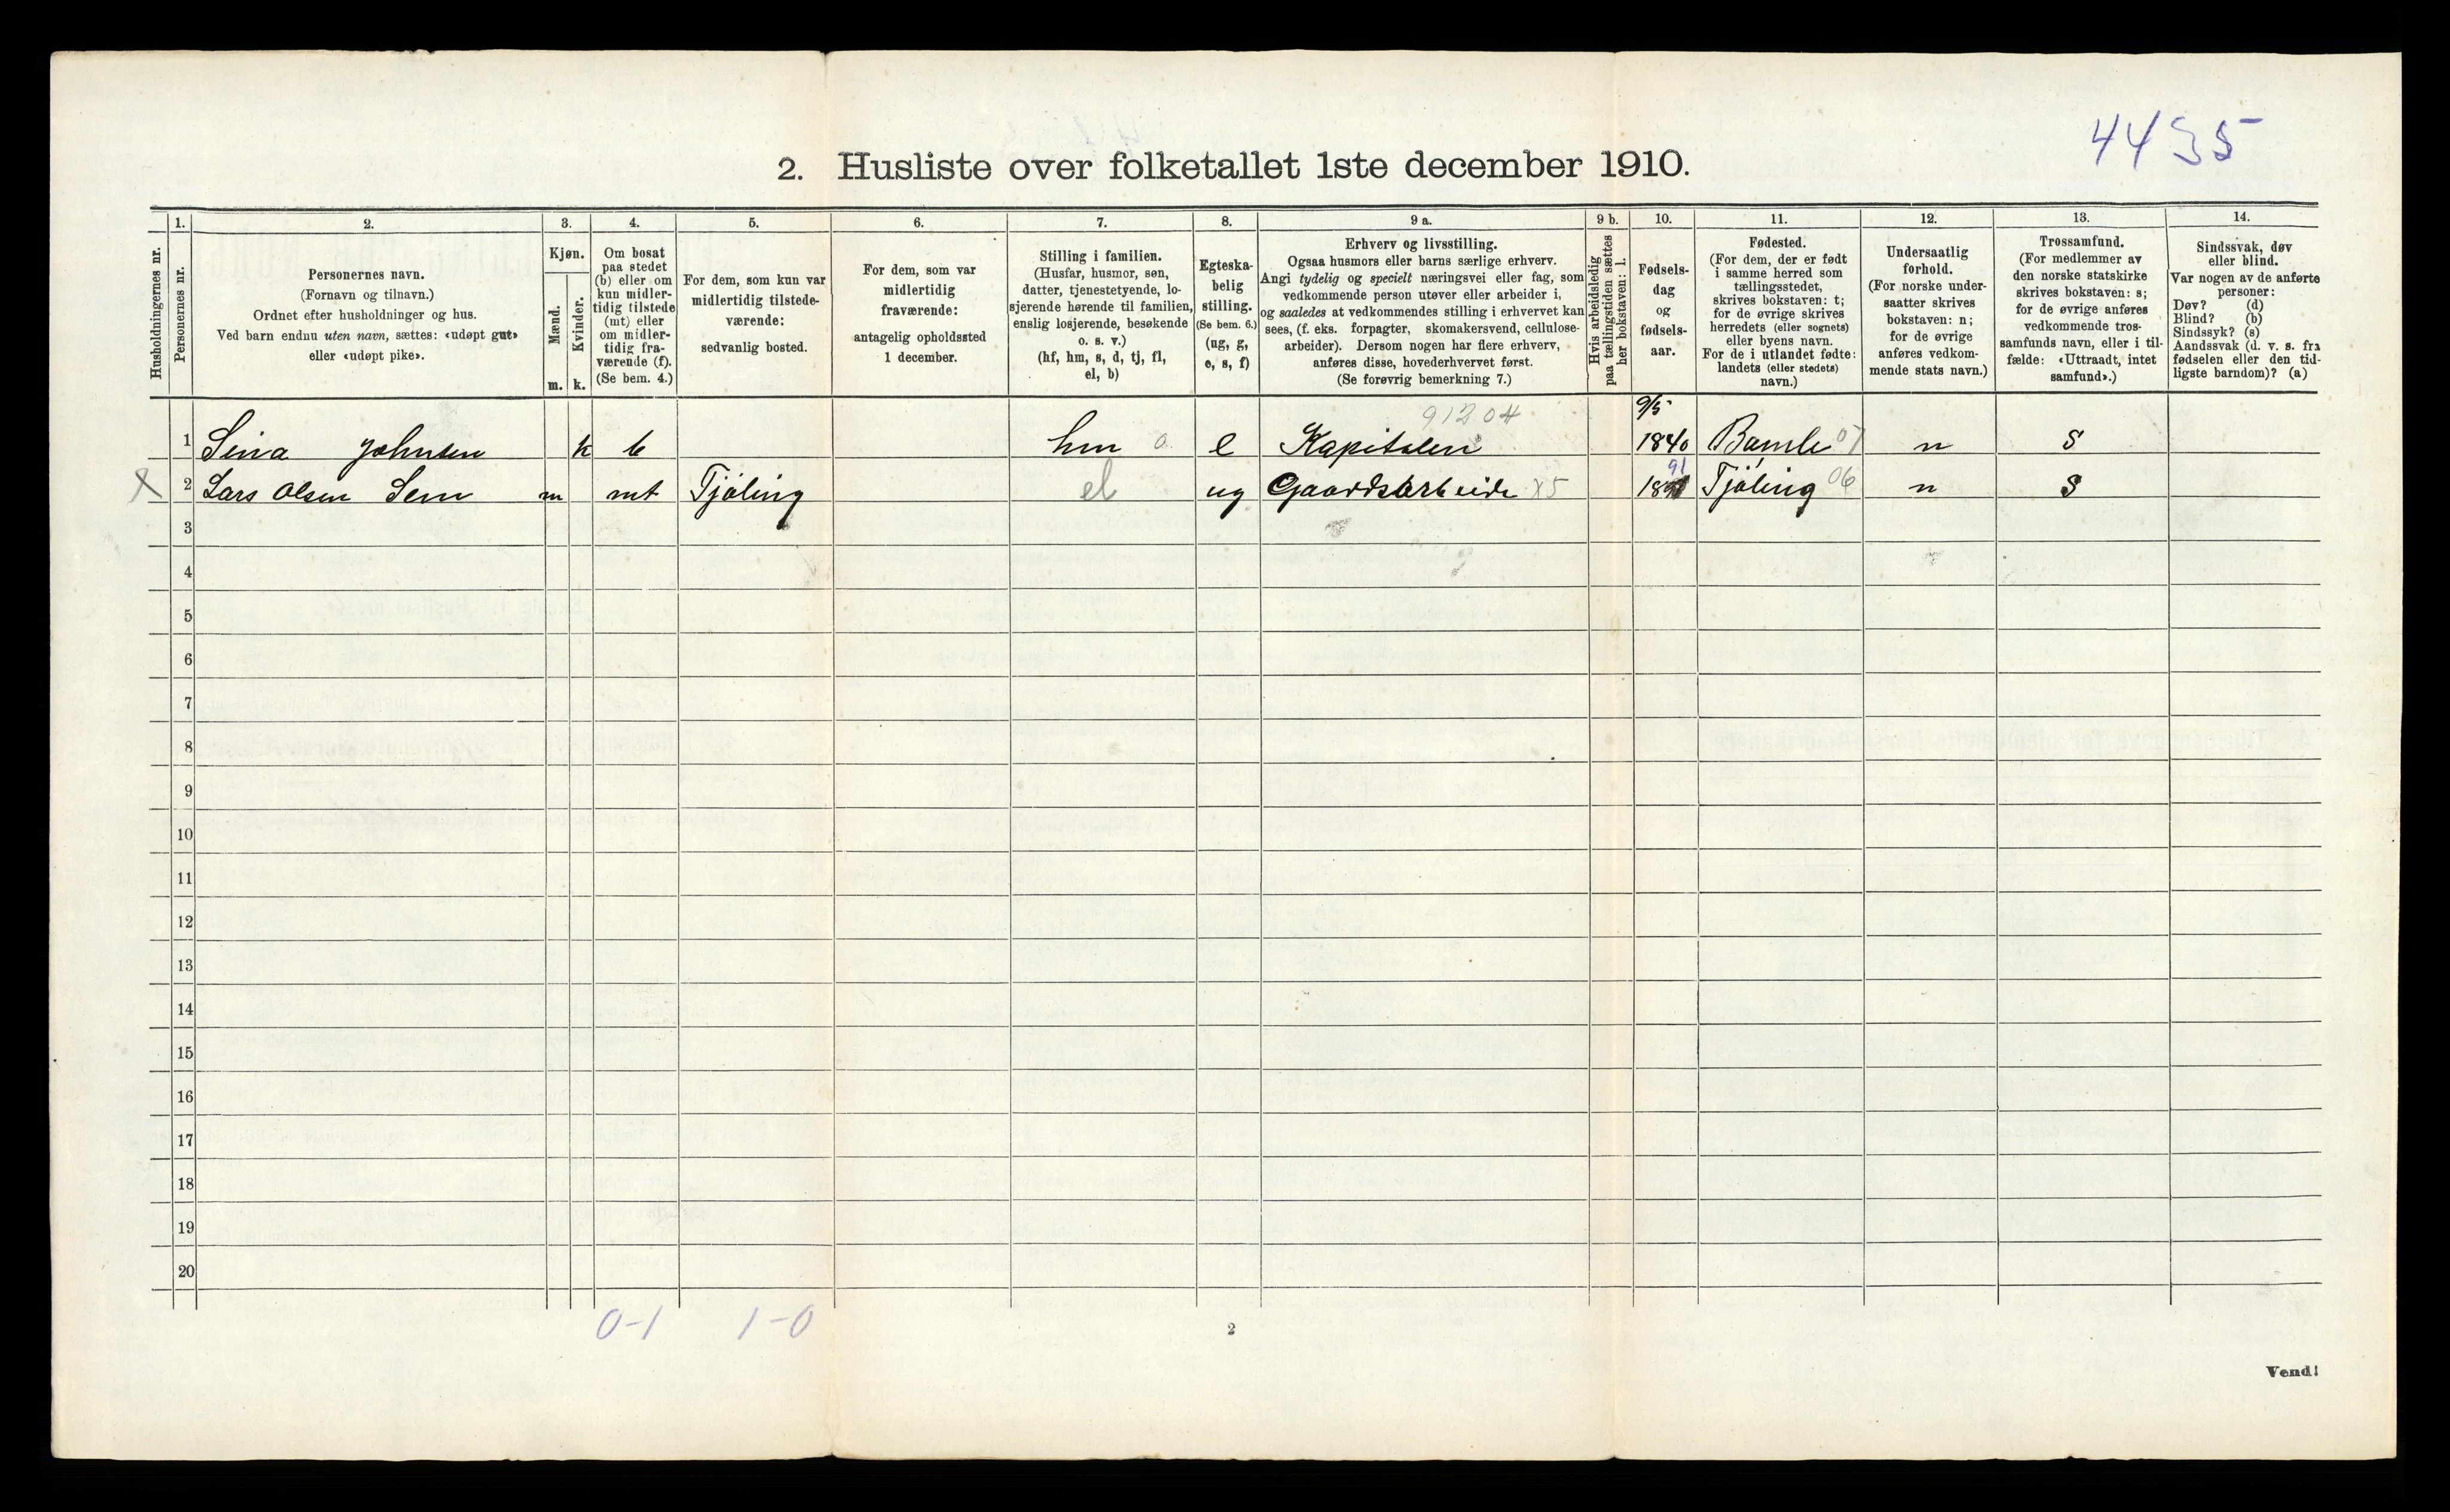 4435
2. Husliste over folketallet 1ste december 1910.
Husholdningernes nr.
1.
Personernes nr.
2.
Personernes navn.
(Fornavn og tilnavn.)
Ordnet efter husholdninger og hus.
Ved barn endnu uten navn, sættes: «udøpt gut»
eller «udøpt pike».
3.
Kjøn.
Mænd.
m.
Kvinder.
k.
4.
Om bosat
paa stedet
(b) eller om
kun midler-
tidig tilstede
(mt) eller
om midler-
tidig fra-
værende (f).
(Se bem. 4.)
5.
For dem, som kun var
midlertidig tilstede-
værende:
sedvanlig bosted.
6.
For dem, som var
midlertidig
fraværende:
antagelig opholdssted
1 december.
7.
Stilling i familien.
(Husfar, husmor, søn,
datter, tjenestetyende, lo-
sjerende hørende til familien,
enslig losjerende, besøkende
o. s. v.)
(hf, hm, s, d, tj, fl,
el, b)
8.
Egteska-
belig
stilling.
(Se bem. 6.)
(ug, g,
e, s, f)
9 a.
Erhverv og livsstilling.
Ogsaa husmors eller barns særlige erhverv.
Angi tydelig og specielt næringsvei eller fag, som
vedkommende person utøver eller arbeider i,
og saaledes at vedkommendes stilling i erhvervet kan
sees, (f. eks. forpagter, skomakersvend, cellulose-
arbeider). Dersom nogen har flere erhverv,
anføres disse, hovederhvervet først.
(Se forøvrig bemerkning 7.)
9 b.
Hvis arbeidsledig
paa tællingstiden sættes
her bokstaven: l.
10.
Fødsels-
dag
og
fødsels-
aar.
11.
Fødested.
(For dem, der er født
i samme herred som
tællingsstedet,
skrives bokstaven: t;
for de øvrige skrives
herredets (eller sognets)
eller byens navn.
For de i utlandet fødte:
landets (eller stedets)
navn.)
12.
Undersaatlig
forhold.
(For norske under-
saatter skrives
bokstaven: n;
for de øvrige
anføres vedkom-
mende stats navn.)
13.
Trossamfund.
(For medlemmer av
den norske statskirke
skrives bokstaven: s;
for de øvrige anføres
vedkommende tros-
samfunds navn, eller i til-
fælde: «Uttraadt, intet
samfund».)
14.
Sindssvak, døv
eller blind.
Var nogen av de anførte
personer:
Døv? (d)
Blind? (b)
Sindssyk? (s)
Aandssvak (d. v. s. fra
fødselen eller den tid-
ligste barndom)? (a)
91204 9/5
1 Sina Johnsen k b hm o. e Kapitalen 1840 Bamle 07 n s
91
X 2 Lars Olsen Sem m mt Tjøling el ug Gaardsarbeide X5 18 Tjøling 06 n s
3
4
5
6
7
8
9
10
11
12
13
14
15
16
17
18
19
20
0-1 1-0
2
Vend!